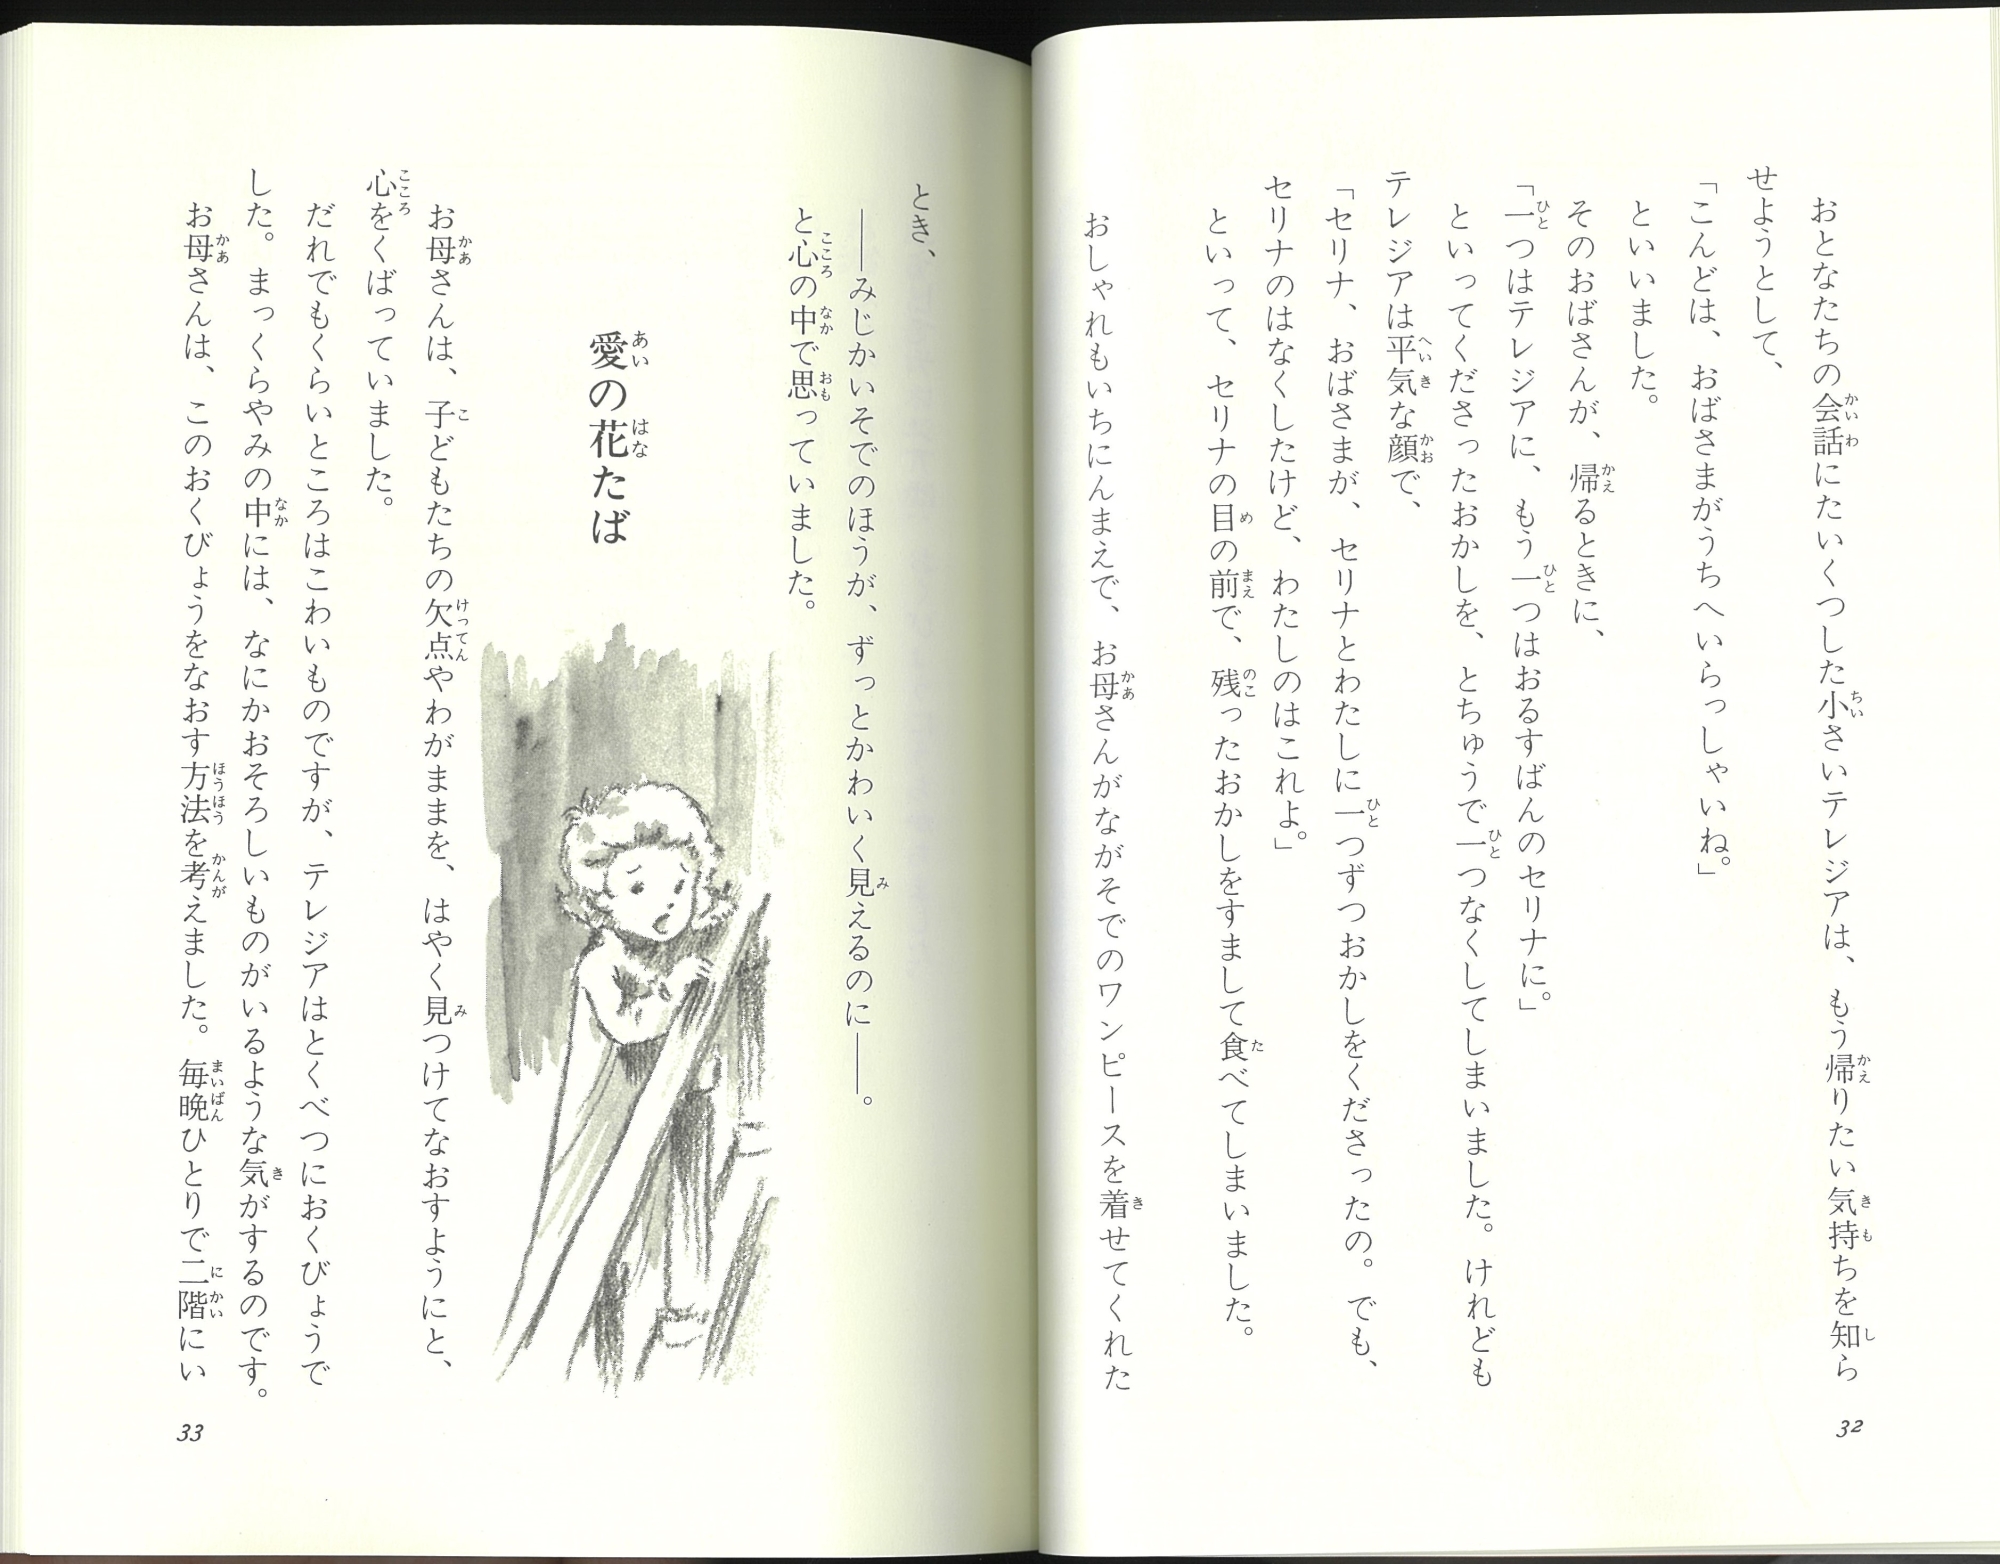 おとなたちの会話にたいくつした小さいテレジアは、もう帰りたい気持ちを知ら
せようとして、
「こんどは、おばさまがうちへいらっしゃいね。」
といいました。
そのおばさんが、帰るときに、
「一つはテレジアに、もう一つはおるすばんのセリナに。」
といってくださったおかしを、とちゅうで一つなくしてしまいました。けれども
テレジアは平気な顔で、
「セリナ、おばさまが、セリナとわたしに一つずつおかしをくださったの。でも、
セリナのはなくしたけど、わたしのはこれよ。」
といって、セリナの目の前で、残ったおかしをすまして食べてしまいました。
おしゃれもいちにんまえで、お母さんがながそでのワンピースを着せてくれた
32
とき、
――みじかいそでのほうが、ずっとかわいく見えるのに――。
と心の中で思っていました。
愛の花たば
お母さんは、子どもたちの欠点やわがままを、はやく見つけてなおすようにと、
心をくばっていました。
だれでもくらいところはこわいものですが、テレジアはとくべつにおくびょうで
した。まっくらやみの中には、なにかおそろしいものがいるような気がするのです。
お母さんは、このおくびょうをなおす方法を考えました。毎晩ひとりで二階にい
33